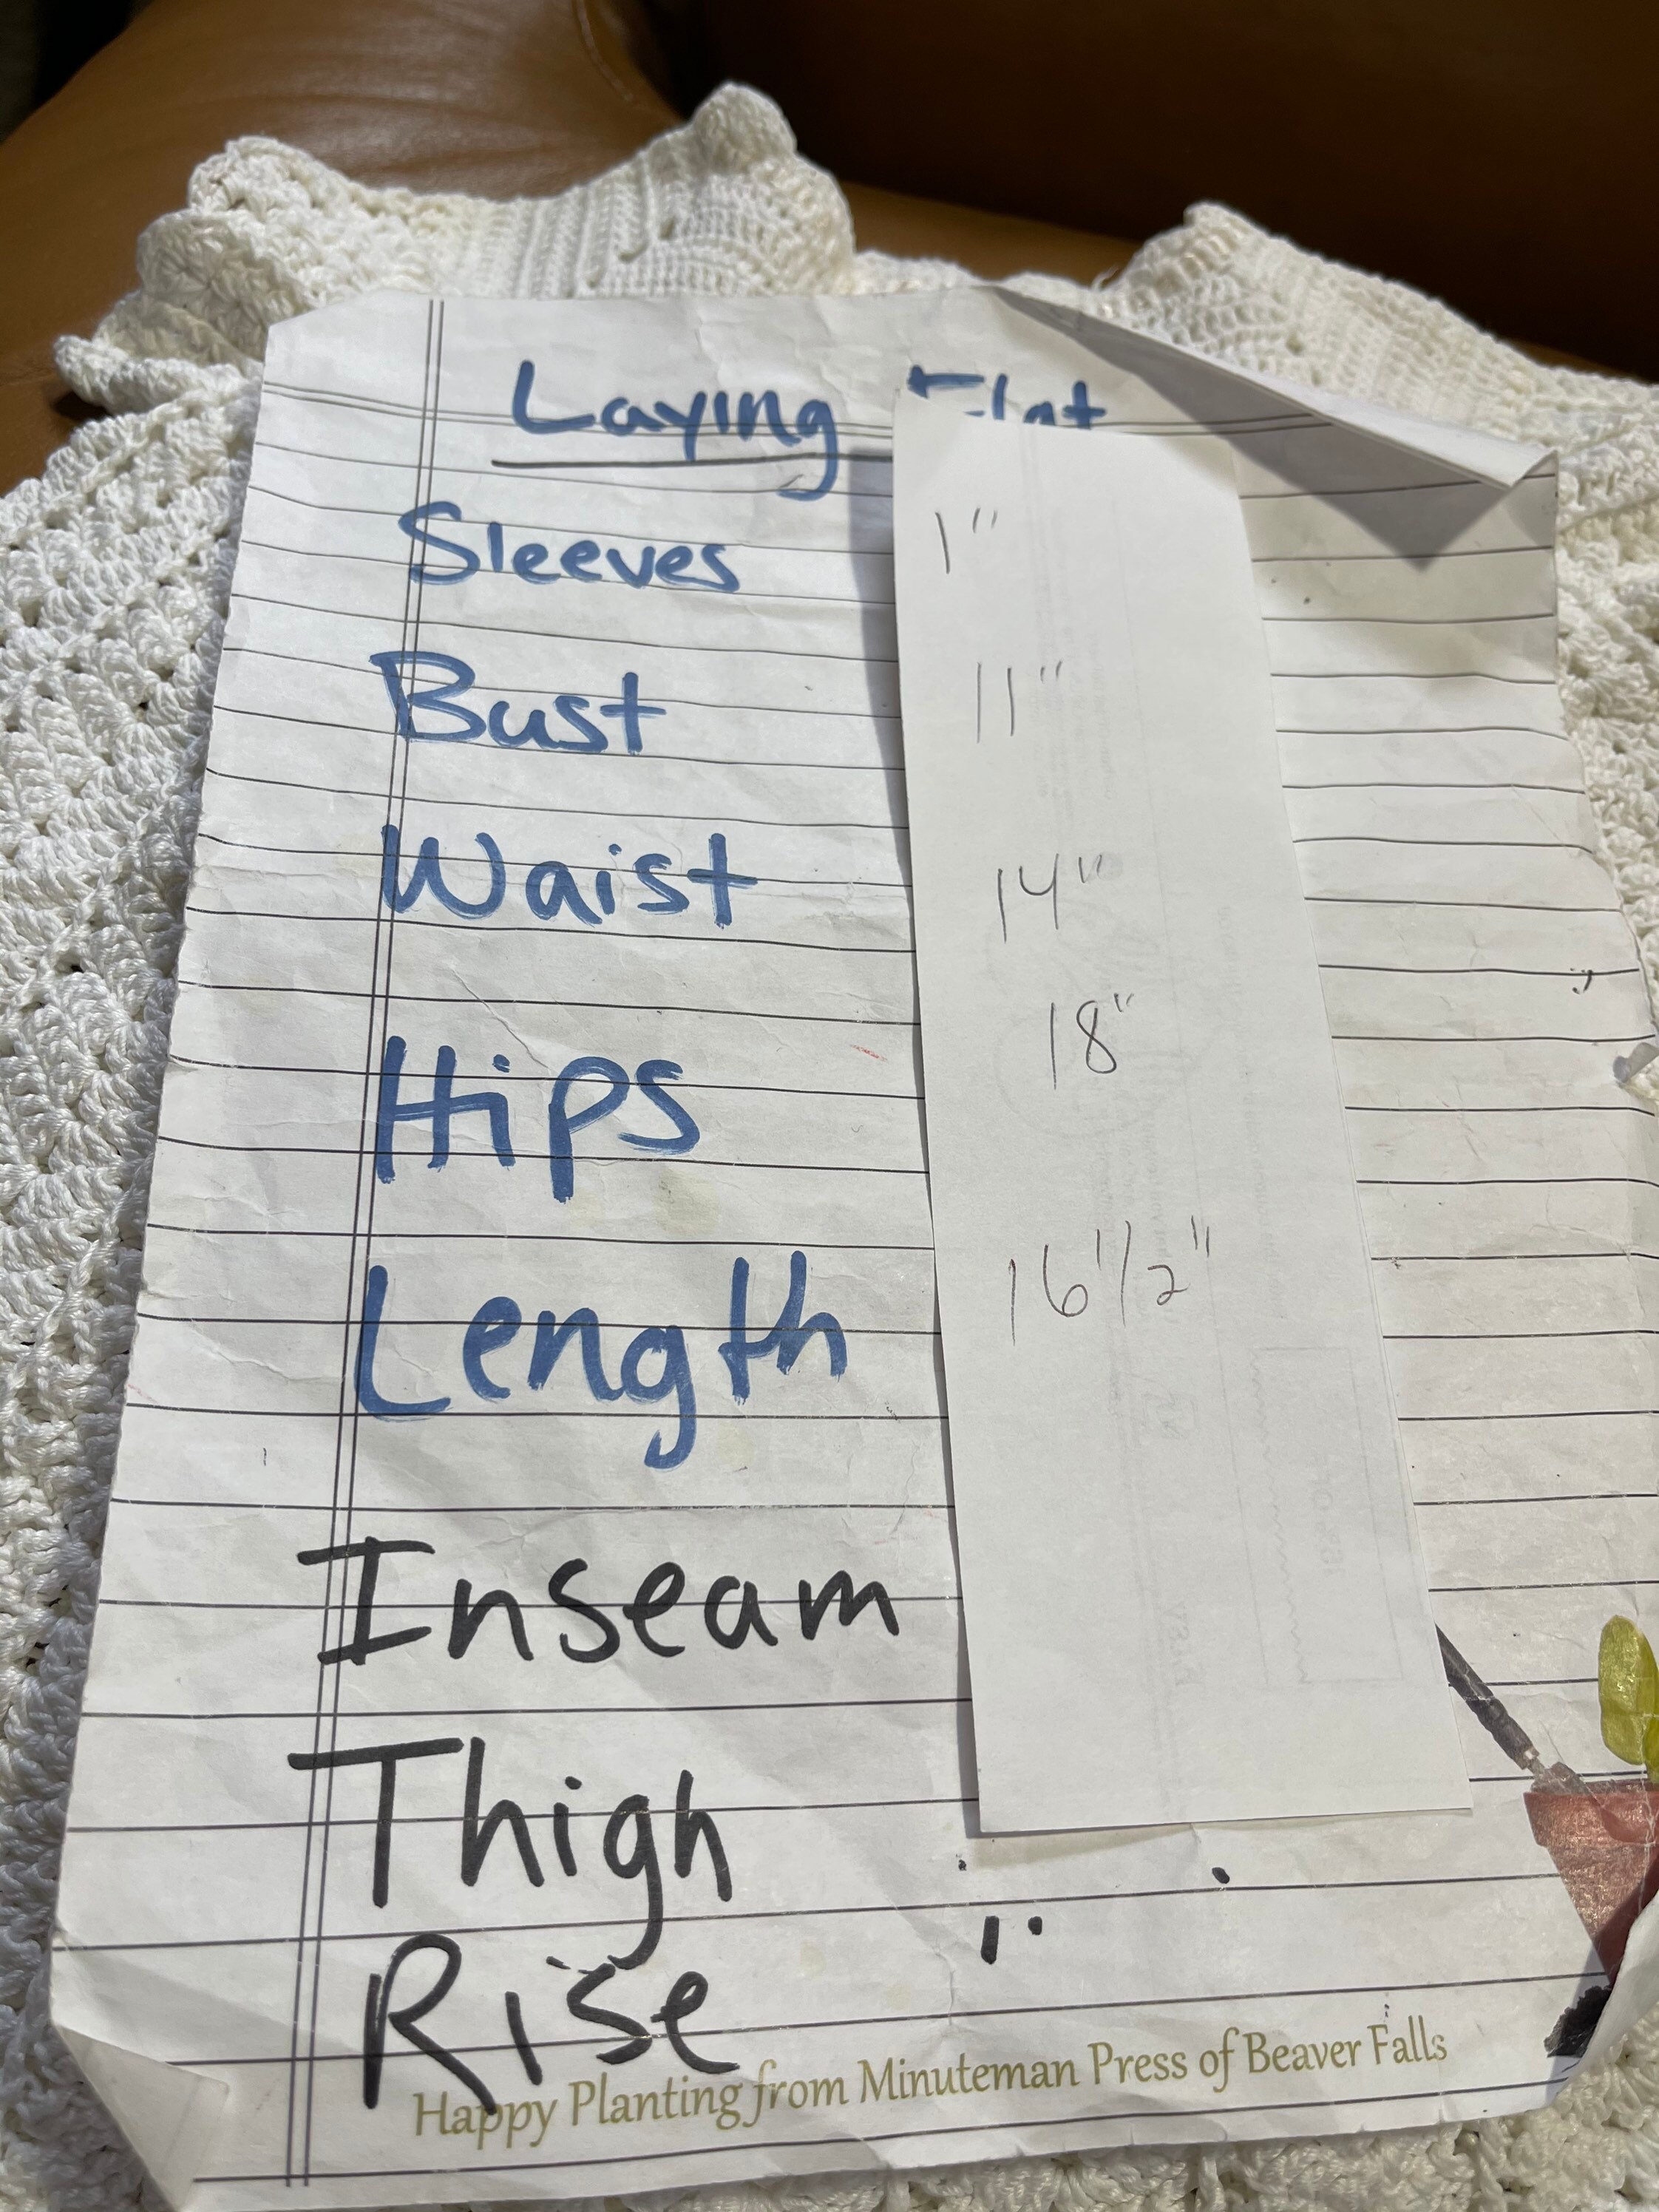 Laying Flat
Sleeves 1"
Bust 11"
Waist 14"
Hips 18"
Length 16 1/2"
Inseam
Thigh
Rise
Happy Planting from Minuteman Press of Beaver Falls